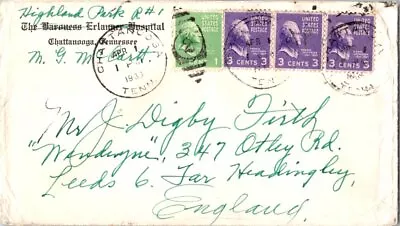 Highland Park R#1
The Baroness Erlanger Hospital
Chattanooga, Tennessee
M. G. McCarth
CHATTANOOGA
APR 1
1939
TENN.
UNITED STATES
POSTAGE
1
UNITED STATES
POSTAGE
3 CENTS 3
UNITED STATES
POSTAGE
3 CENTS 3
UNITED STATES
POSTAGE
3 CENTS 3
TENN.
Mr J. Digby Firth
"Wanderyne", 347 Otley Rd.
Leeds 6. Far Headingley,
England.